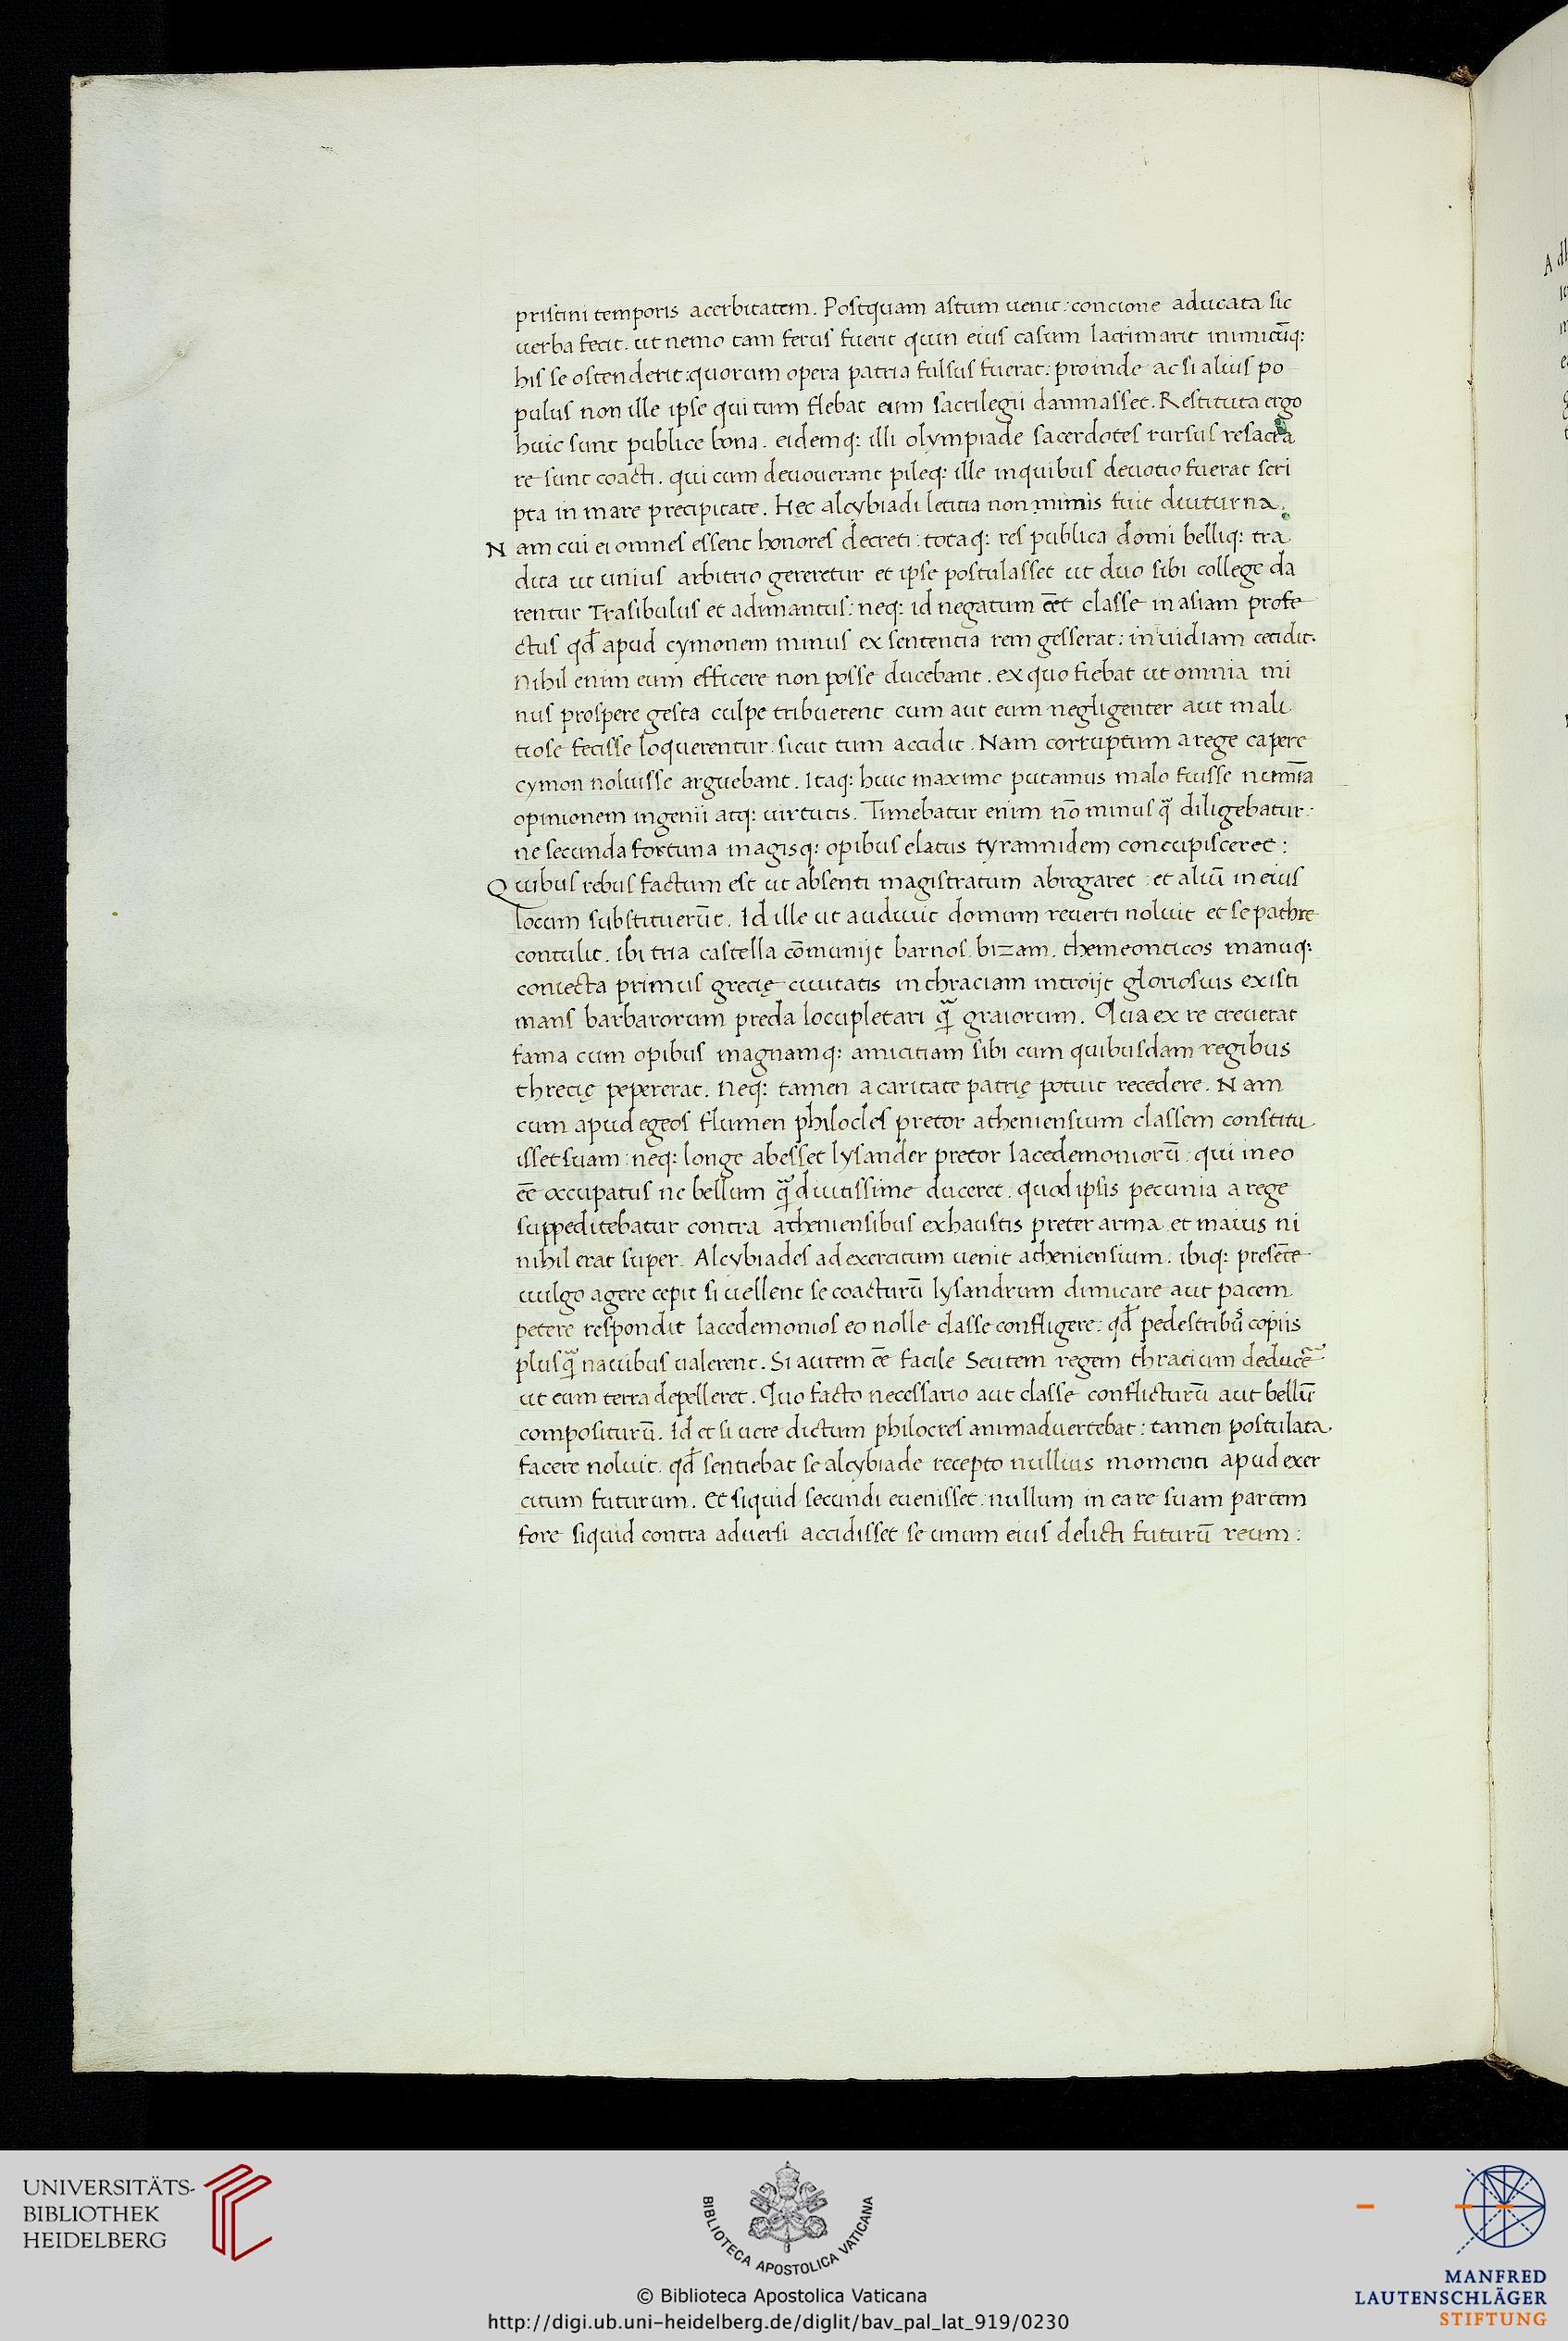 pristini temporis acerbitatem. Postquam astum uenit: concione aducata sic
uerba fecit. ut nemo tam ferus fuerit quin eius casum lacrimarit inimicūq:
his se ostenderit: quorum opera patria fulsus fuerat: proinde ac si alius po
pulus non ille ipse qui tum flebat eum sacrilegii damnasset. Restituta ergo
huic sunt publice bona. eidemq: illi olympiade sacerdotes rursus resacra
re sunt coacti. qui cum deuouerant pileq: ille inquibus deuotio fuerat scri
pta in mare precipitate. Hec alcybiadi letitia non nimis fuit diuturna.
Nam cui ei omnes essent honores decreti: totaq: res publica domi belliq: tra
dita ut unius arbitrio gereretur et ipse postulasset ut duo sibi college da
rentur Trasibulus et adimantus: neq: id negatum eēt classe in asiam profe
ctus qđ apud cymonem minus ex sententia rem gesserat: inuidiam cecidit.
Nihil enim eum efficere non posse ducebant. ex quo fiebat ut omnia mi
nus prospere gesta culpe tribuerent cum aut eum negligenter aut mali
tiose fecisse loquerentur. sicut tum accidit. Nam corruptum a rege capere
cymon noluisse arguebant. Itaq: huic maxime putamus malo fuisse numīa
opinionem ingenii atq: uirtutis. Timebatur enim nō minus q̄ diligebatur.
ne secunda fortuna magisq: opibus elatus tyrannidem concupisceret:
Quibus rebus factum est ut absenti magistratum abrogaret et aliū in eius
locum substituerūt. Id ille ut audiuit domum reuerti noluit et se pathre
contulit. ibi tria castella cōmunijt barnos. bizam. themeonticos manuq:
coniecta primus grecię ciuitatis in thraciam introijt gloriosius existi
mans barbarorum preda locupletari q̄ graiorum. Qua ex re creuerat
fama cum opibus magnamq: amicitiam sibi cum quibusdam regibus
threcię pepererat. Neq: tamen a caritate patrię potuit recedere. Nam
cum apud egeos flumen philocles pretor atheniensium classem constitu
isset suam: neq: longe abesset lysander pretor lacedemoniorū: qui in eo
eē occupatus ne bellum q̄ diutissime duceret. quod ipsis pecunia a rege
suppeditebatur contra atheniensibus exhaustis preter arma et mauis ni
nihil erat super. Alcybiades ad exercitum uenit atheniensium. ibiq: presēte
uulgo agere cepit si uellent se coacturū lysandrum dimicare aut pacem
petere respondit lacedemonios eo nolle classe confligere: qđ pedestribus copiis
plusq̄ nauibus ualerent. Si autem eē facile Seutem regem thracium deducē
ut eum terra depelleret. Quo facto necessario aut classe conflicturū aut bellū
compositurū. Id et si uere dictum philocres animaduertebat: tamen postulata
facere noluit. qđ sentiebat se alcybiade recepto nullius momenti apud exer
citum futurum. Et siquid secundi euenisset. nullum in ea re suam partem
fore siquid contra aduersi accidisset se unum eius delicti futurū reum:
UNIVERSITÄTS-
BIBLIOTHEK
HEIDELBERG
BIBLIOTECA APOSTOLICA VATICANA
© Biblioteca Apostolica Vaticana
http://digi.ub.uni-heidelberg.de/diglit/bav_pal_lat_919/0230
MANFRED
LAUTENSCHLÄGER
STIFTUNG